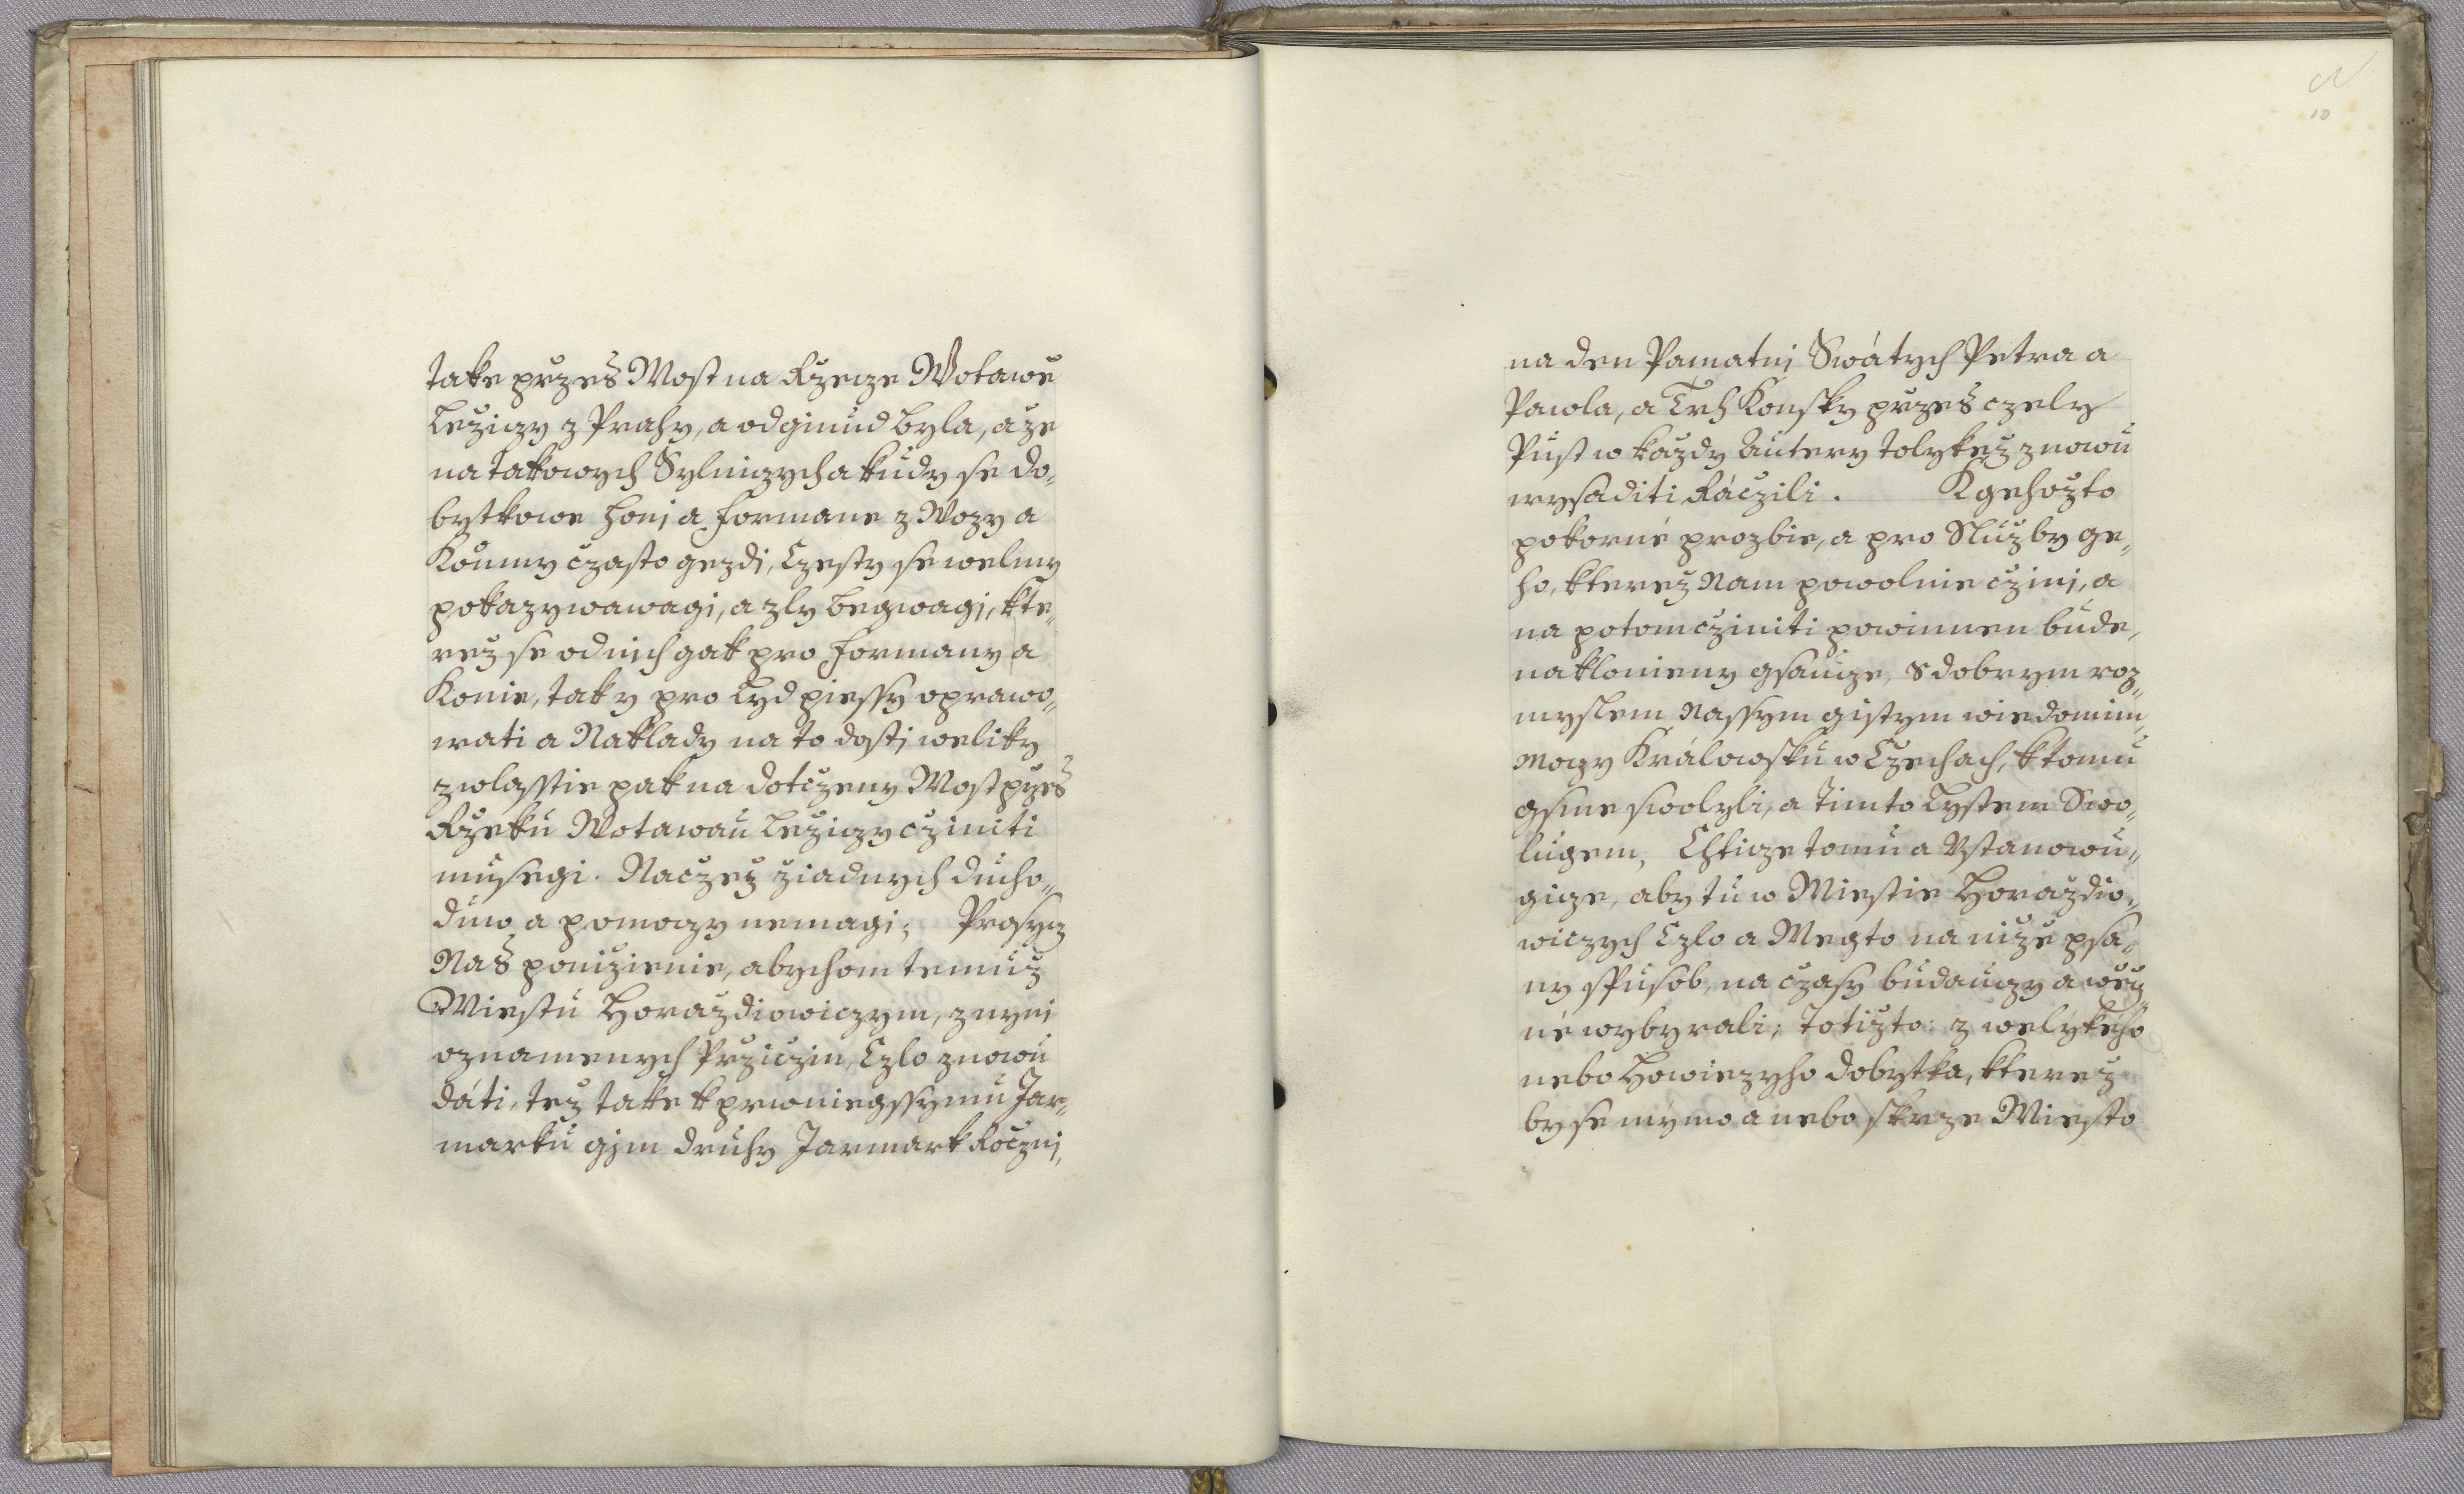 take przes Most na Rzecze Wotawe
Leziczy z Prahy, a odginud byla, a ze
na takowych Sylniczych a kudy se do„
bytkowe honi a formane z Wozy a
Koumy czasto gezdi, Czesty se welmy
pokazywawagi, a zly begwagi, kte„
rez se od nich gak pro formany a
Konie, tak y pro Lyd piessy oprawo„
wati a Naklady na to dosti weliky
zwlasstie pak na dotczeny Most przes
Rzeku Wotawau Leziczy cziniti
musegi. Naczez ziadnych ducho„
duw a pomoczy nemagi; Prosycz
Nas ponizienie, abychom temuz
Miestu Horazdiowiczym, z nyni
oznamenych Prziczin, Czlo znowu
dáti, tez take k prwniegssymu Jar„
marku gim druhy Jarmark Roczni,
10
na den Pamatni Swátych Petra a
Pawla, a Trh Konsky przes czely
Pust w kazdy Autery tolykez znowu
wysaditi Ráczili. K gehozto
pokorné prozbie, a pro Sluzby ge„
ho, kterez Nam powolnie czini, a
na potom cziniti powinnen bude,
naklonieny gsaucze, s dobrym roz„
myslem Nassym gistym wiedomim,
Moczy Králowsku w Czechach, k tomu
gsme swolyli, a timto Lystem Swo„
lugem, Chticze tomu a Ustanowu„
gicze, aby tu w Miestie Horazdio„
wiczych Czlo a Megto na nize psa„
ny spusob, na czasy budauczy a wecz„
né wybyrali; Totizto: z welykeho
nebo Howieziho dobytka, kterez
by se mymo a nebo skrze Miesto